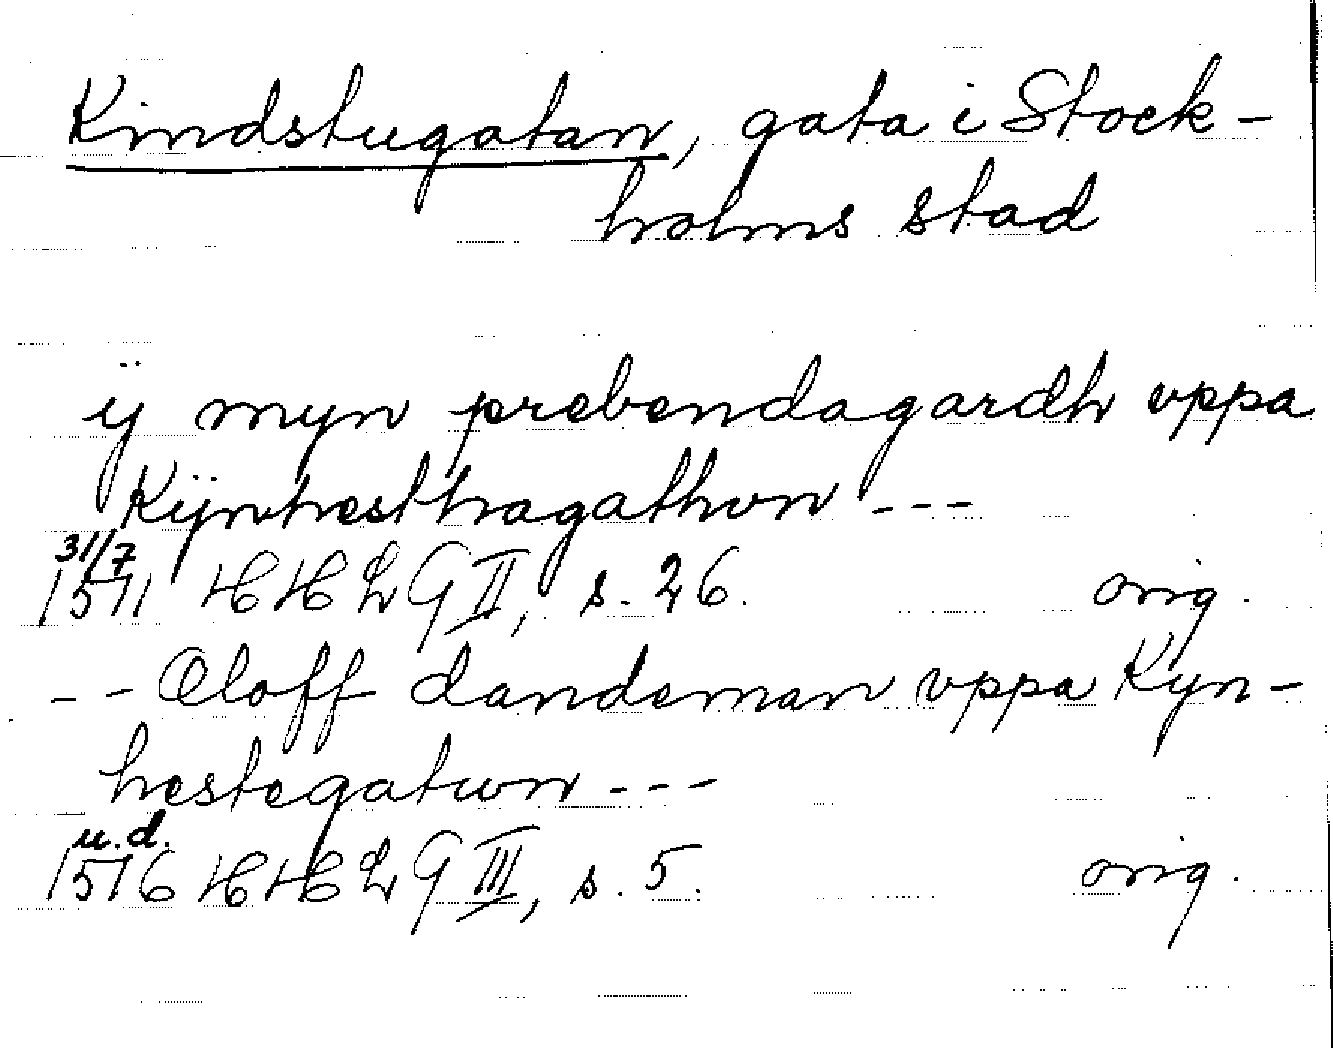 Kindstugatan, gata i Stock-
holms stad
ÿ myn prebendagardh vppa
Kÿnhesthagathon ---
31/7
1511 HHLG II, s. 26. orig.
-- Oloff dandeman vppa Kyn-
hestegatwn ---
u.d.
1516 HHLG III, s. 5. orig.